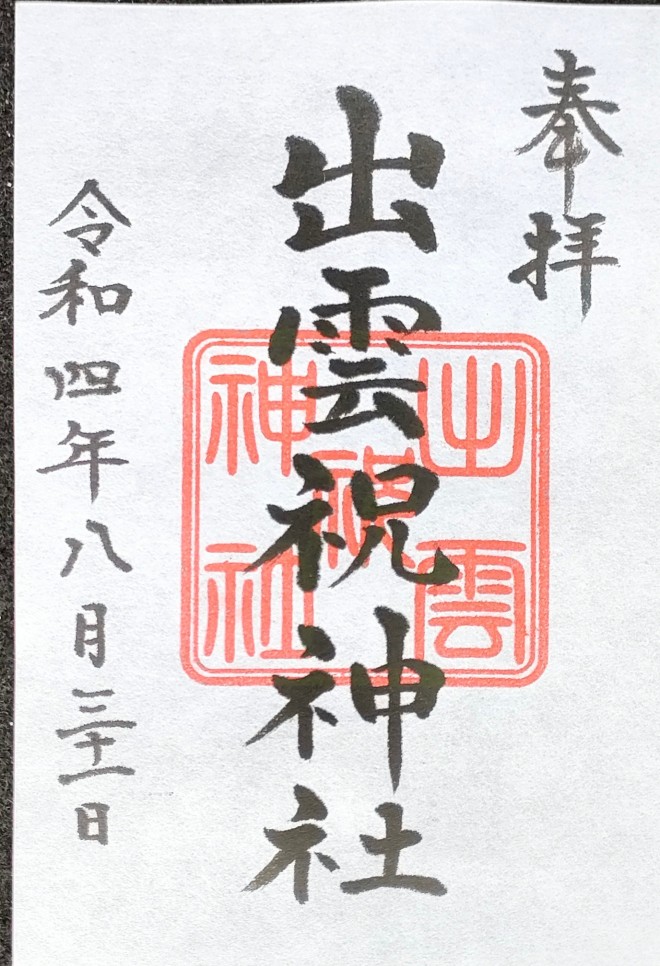 奉拝
出雲祝神社
出雲
祝
神社
令和四年八月三十一日